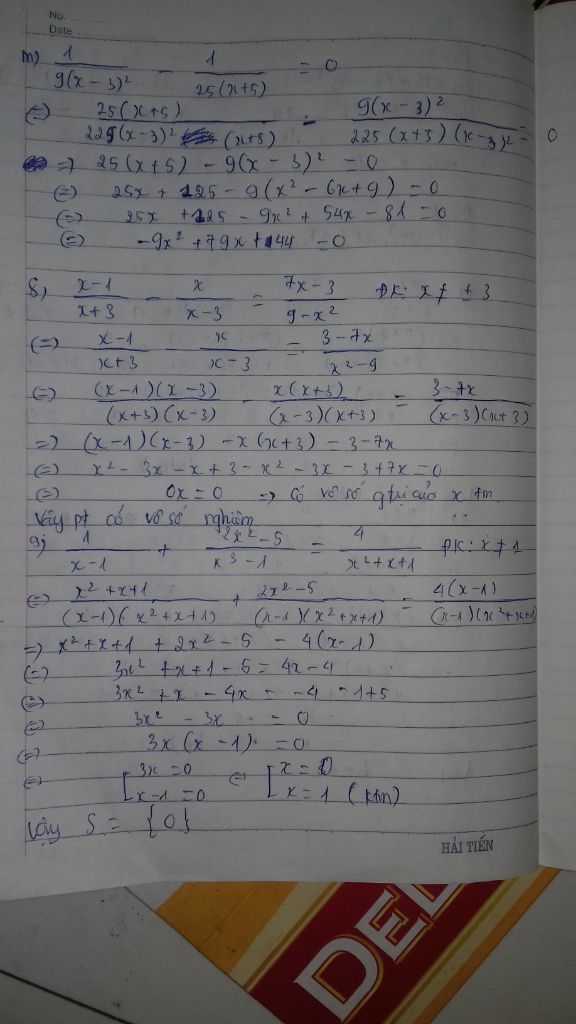 No.
Date
m) 1/(9(x-3)²) - 1/(25(x+5)) = 0
(=) 25(x+5)/(225(x-3)² (x+5)) - 9(x-3)²/(225(x+5)(x-3)²) = 0
=) 25(x+5) - 9(x-3)² = 0
(=) 25x + 125 - 9(x² - 6x + 9) = 0
(=) 25x + 125 - 9x² + 54x - 81 = 0
(=) -9x² + 79x + 44 = 0
f) (x-1)/(x+3) - x/(x-3) = (7x-3)/(9-x²) ĐK: x ≠ ±3
(=) (x-1)/(x+3) - x/(x-3) = (3-7x)/(x²-9)
(=) (x-1)(x-3)/((x+3)(x-3)) - x(x+3)/((x-3)(x+3)) = (3-7x)/((x-3)(x+3))
=) (x-1)(x-3) - x(x+3) = 3-7x
(=) x² - 3x - x + 3 - x² - 3x - 3 + 7x = 0
(=) 0x = 0 => Có vô số gtrị của x tm
Vậy pt có vô số nghiệm
g) 1/(x-1) + (2x²-5)/(x³-1) = 4/(x²+x+1) ĐK: x ≠ 1
(=) (x²+x+1)/((x-1)(x²+x+1)) + (2x²-5)/((x-1)(x²+x+1)) = 4(x-1)/((x-1)(x²+x+1))
=) x²+x+1 + 2x²-5 = 4(x-1)
(=) 3x² + x + 1 - 5 = 4x - 4
(=) 3x² + x - 4x = -4 - 1 + 5
(=) 3x² - 3x = 0
(=) 3x(x-1) = 0
(=) [3x = 0 (=) [x = 0
[x-1 = 0 [x = 1 (ktm)
Vậy S = {0}
HẢI TIẾN
DEL